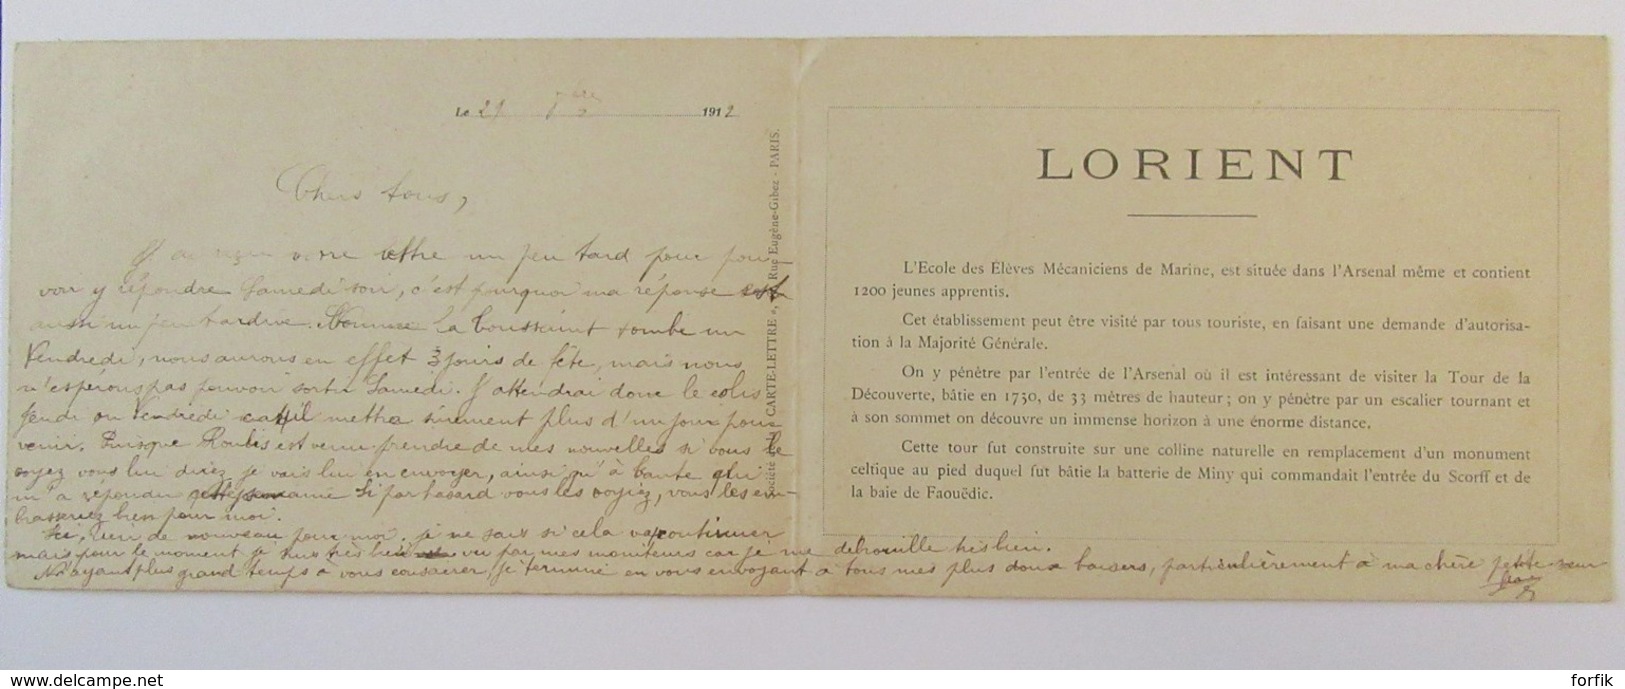 Le 21 1912
Chers tous,
J'ai reçu votre lettre un peu tard pour pou-
voir y répondre Samedi soir, c'est pourquoi ma réponse est
aussi un peu tardive. Comme la Toussaint tombe un
Vendredi, nous aurons en effet 3 jours de fête, mais nous
n'espérons pas pouvoir sortir Samedi. J'attendrai donc le colis
Jeudi ou Vendredi car il mettra sûrement plus d'un jour pour
venir. Puisque est venu prendre de mes nouvelles si vous le
voyez vous lui direz je vais lui en envoyer, ainsi qu'à tante qui
m'a répondu cette semaine. Si par hasard vous les voyiez, vous les em-
brasseriez bien pour moi.
Ici, rien de nouveau pour moi. je ne sais si cela va continuer
mais pour le moment je suis très bien vu par mes moniteurs car je me débrouille très bien.
N'ayant plus grand temps à vous consacrer, je termine en vous envoyant à tous mes plus doux baisers, particulièrement à ma chère petite sœur
Société des CARTE-LETTRE », Rue Eugène-Gibez - PARIS.
LORIENT
L'Ecole des Élèves Mécaniciens de Marine, est située dans l'Arsenal même et contient
1200 jeunes apprentis.
Cet établissement peut être visité par tous touriste, en faisant une demande d'autorisa-
tion à la Majorité Générale.
On y pénètre par l'entrée de l'Arsenal où il est intéressant de visiter la Tour de la
Découverte, bâtie en 1730, de 33 mètres de hauteur ; on y pénètre par un escalier tournant et
à son sommet on découvre un immense horizon à une énorme distance.
Cette tour fut construite sur une colline naturelle en remplacement d'un monument
celtique au pied duquel fut bâtie la batterie de Miny qui commandait l'entrée du Scorff et de
la baie de Faouëdic.
www.delcampe.net
forfik